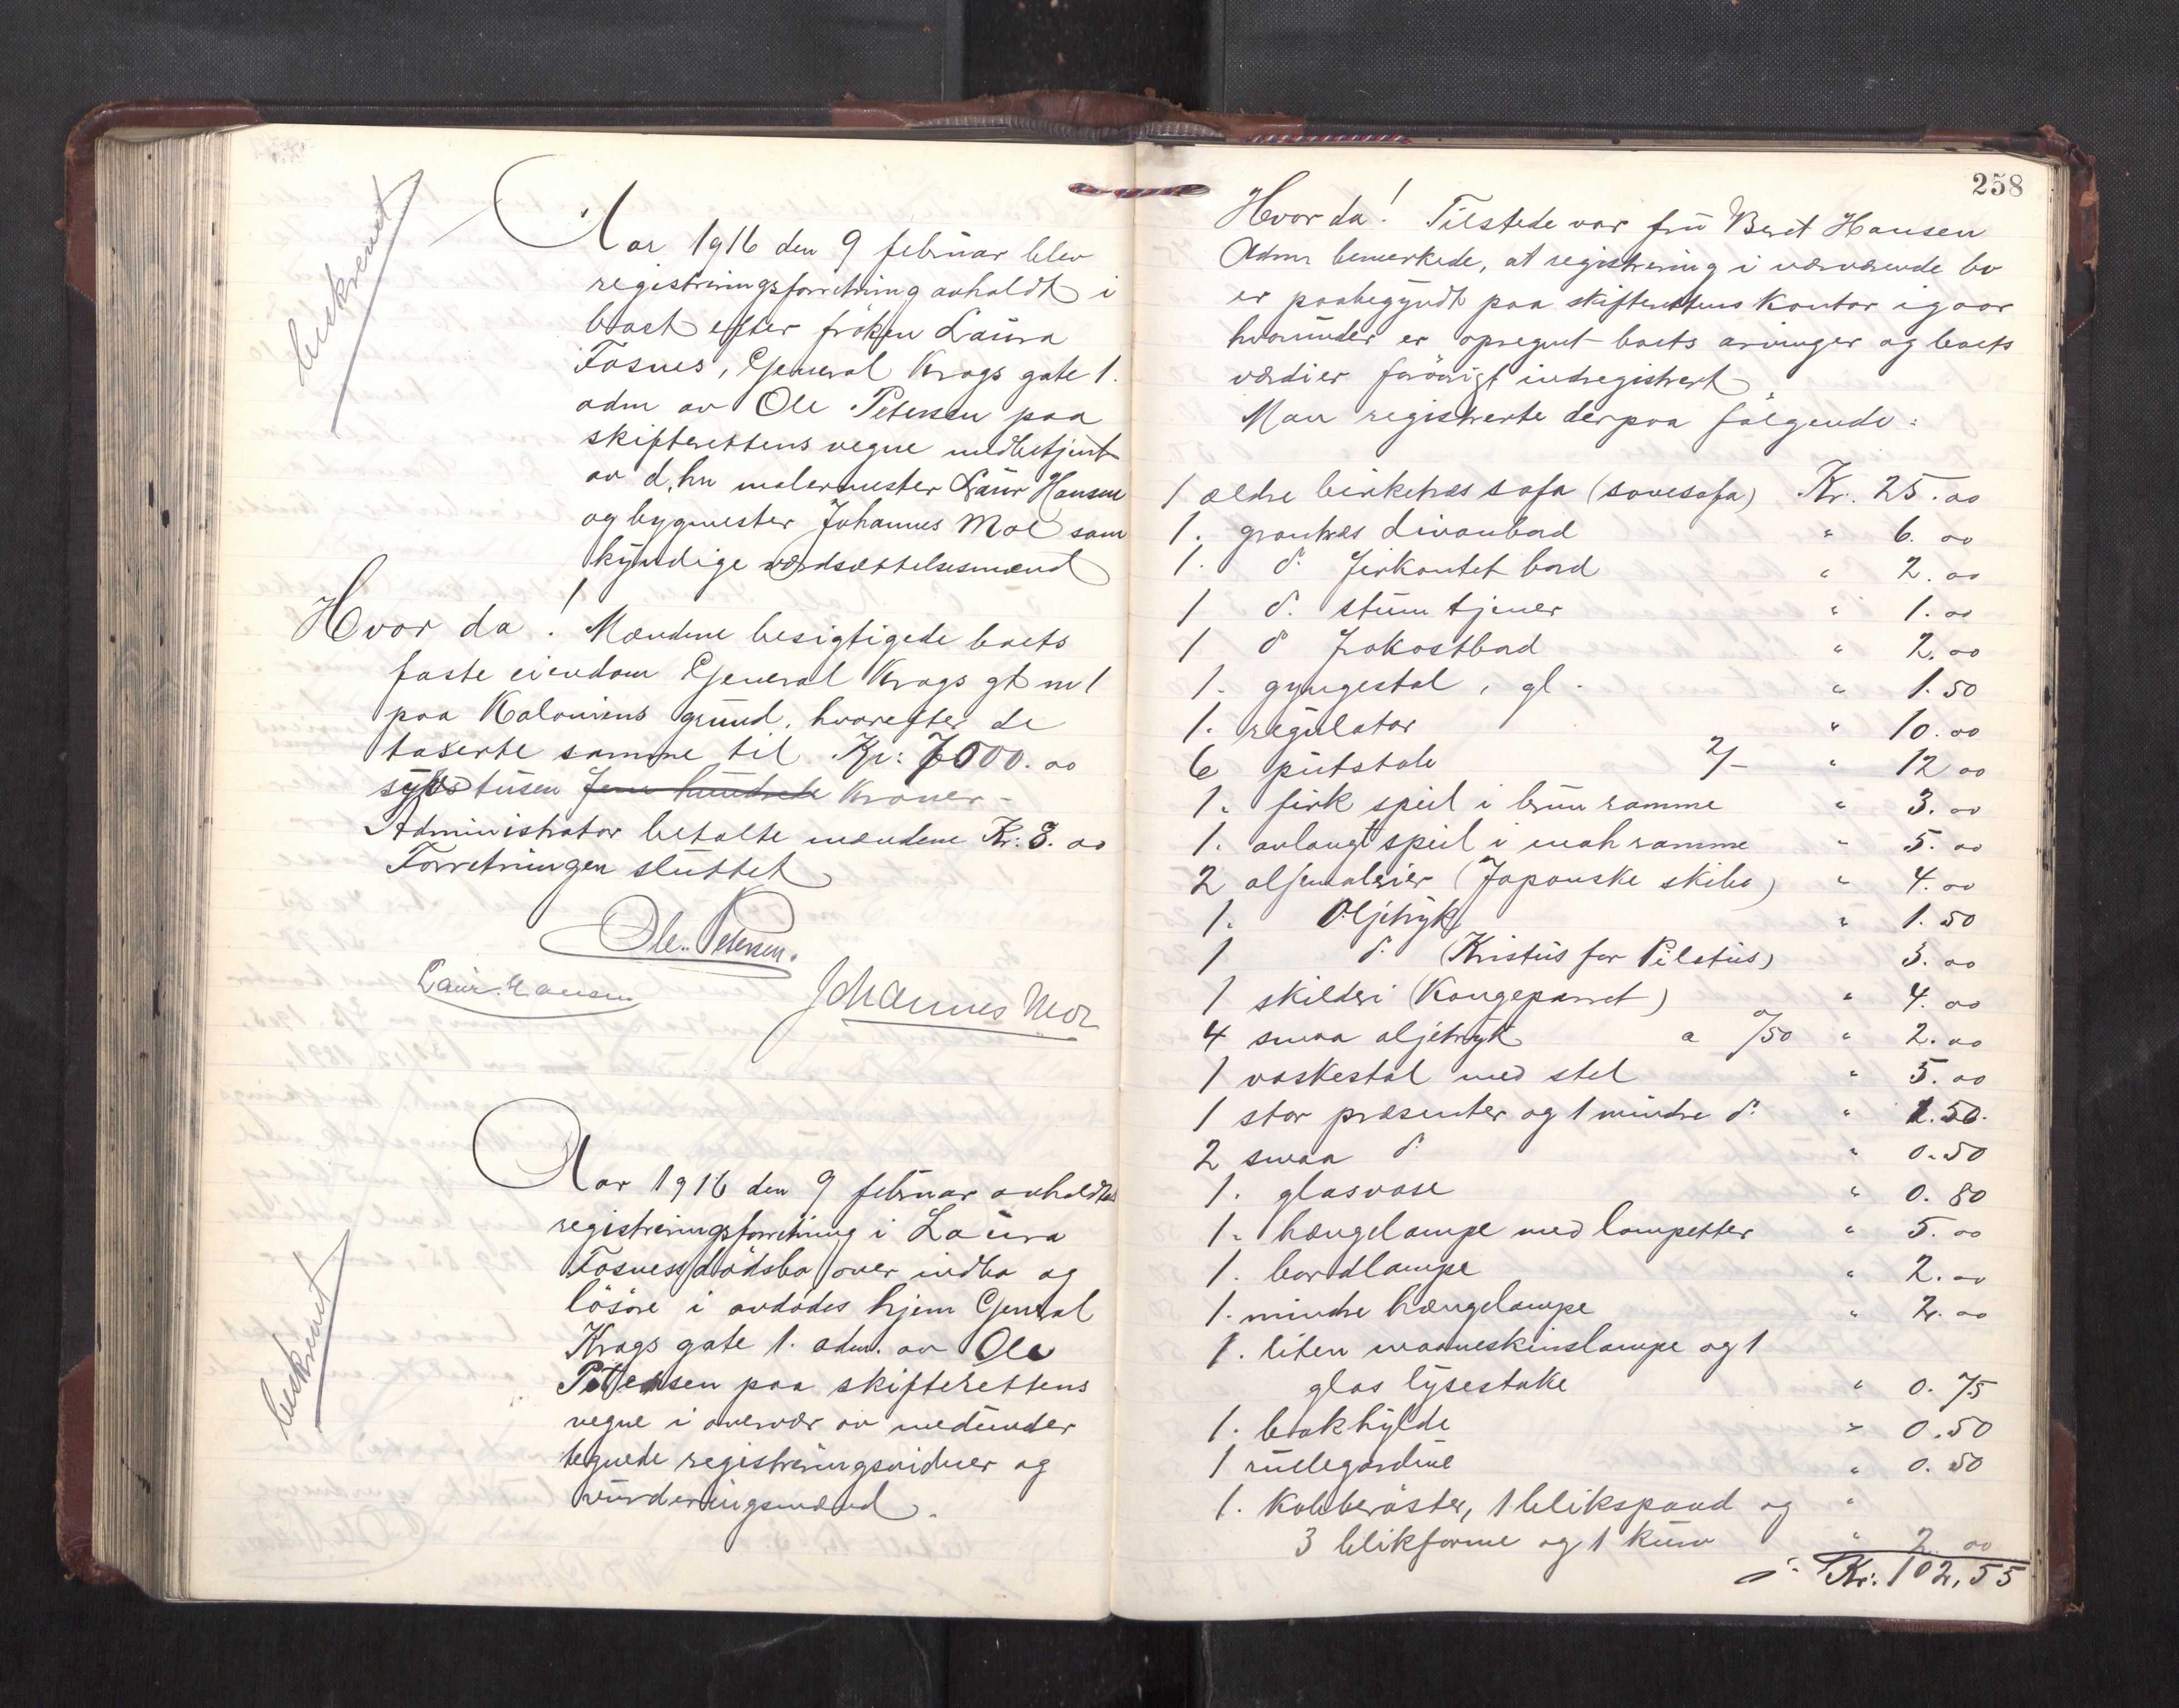 beskrevet
Aar 1916 den 9 februar blev
registreringsforretning avholdt i
boet efter frøken Laura
Fosnes, General Krags gate 1.
adm av Ole Petersen paa
skifterettens vegne medbetjent
av d,hrr malermester Laur Hansen
og bygmester Johannes Moe som
kyndige værdsættelsesmænd
Hvor da! Mændene besigtigede boets
faste eiendom General Krags gt nr 1
paa Kaloniens grund, hvorefter de
taserte samme til Kr: 7000.00
syv tusen fem hundrede Kroner-
Administrator betalte mændene Kr: 8.00
Forretningen sluttet
Ole Petersen.
Laur. Hansen
Johannes Moe
beskrevet
Aar 1916 den 9 februar avholdtes
registreringsforretning i Laura
Fosness dødsbo over indbo og
løsøre i avdødes hjem General
Krags gate 1. adm. av Ole
Petersen paa skifterettens
vegne i overvær av medunder
tegnede registreringsvidner og
vurderingsmænd.
258
Hvor da! Tilstede var fru Beret Hansen
Adm bemerkede, at registrering i nærværende bo
er paabegyndt paa skifterettens Kontor igaar
hvorunder er opregnet boets arvinger og boets
værdier forøvrigt indregistrert
Man registrerte derpaa følgende:
1 ældre birketræs sofa (sovesofa) Kr. 25.00
1. grantræs divanbord " 6.00
1. do. firkantet bord " 2.00
1 do. stum tjener " 1.00
1 do frokostbord " 2.00
1. gyngestol, gl. " 1.50
1. regulator " 10.00
6 putstole 2/- " 12 00
1. firk speil i brun ramme " 3.00
1. avlangt speil i mah ramme " 5.00
2 oljemalerier (Japanske skibe) " 4.00
1. Oljetryk " 1.50
1 do. (Kristus for Pilatus) 3.00
1 skilderi (Kongeparret) " 4.00
4 smaa oljetryk a 0/50 " 2.00
1 vaskestol med stel " 5.00
1 stor præsenter og 1 mindre do. " 1.50.
2 smaa do " 0.50
1. glasvase " 0.80
1. hængelampe med lampetter " 5.00
1. bordlampe " 2.00
1. mindre hængelampe " 2.00
1. liten maaneskinslampe og 1
glas lysestake " 0.75
1. bokhylde " 0.50
1 rullegardine " 0.50
1. Kobberøster, 1 blikspand og "
3 blikforme og 1 kurv " 2 00
Kr: 102,55